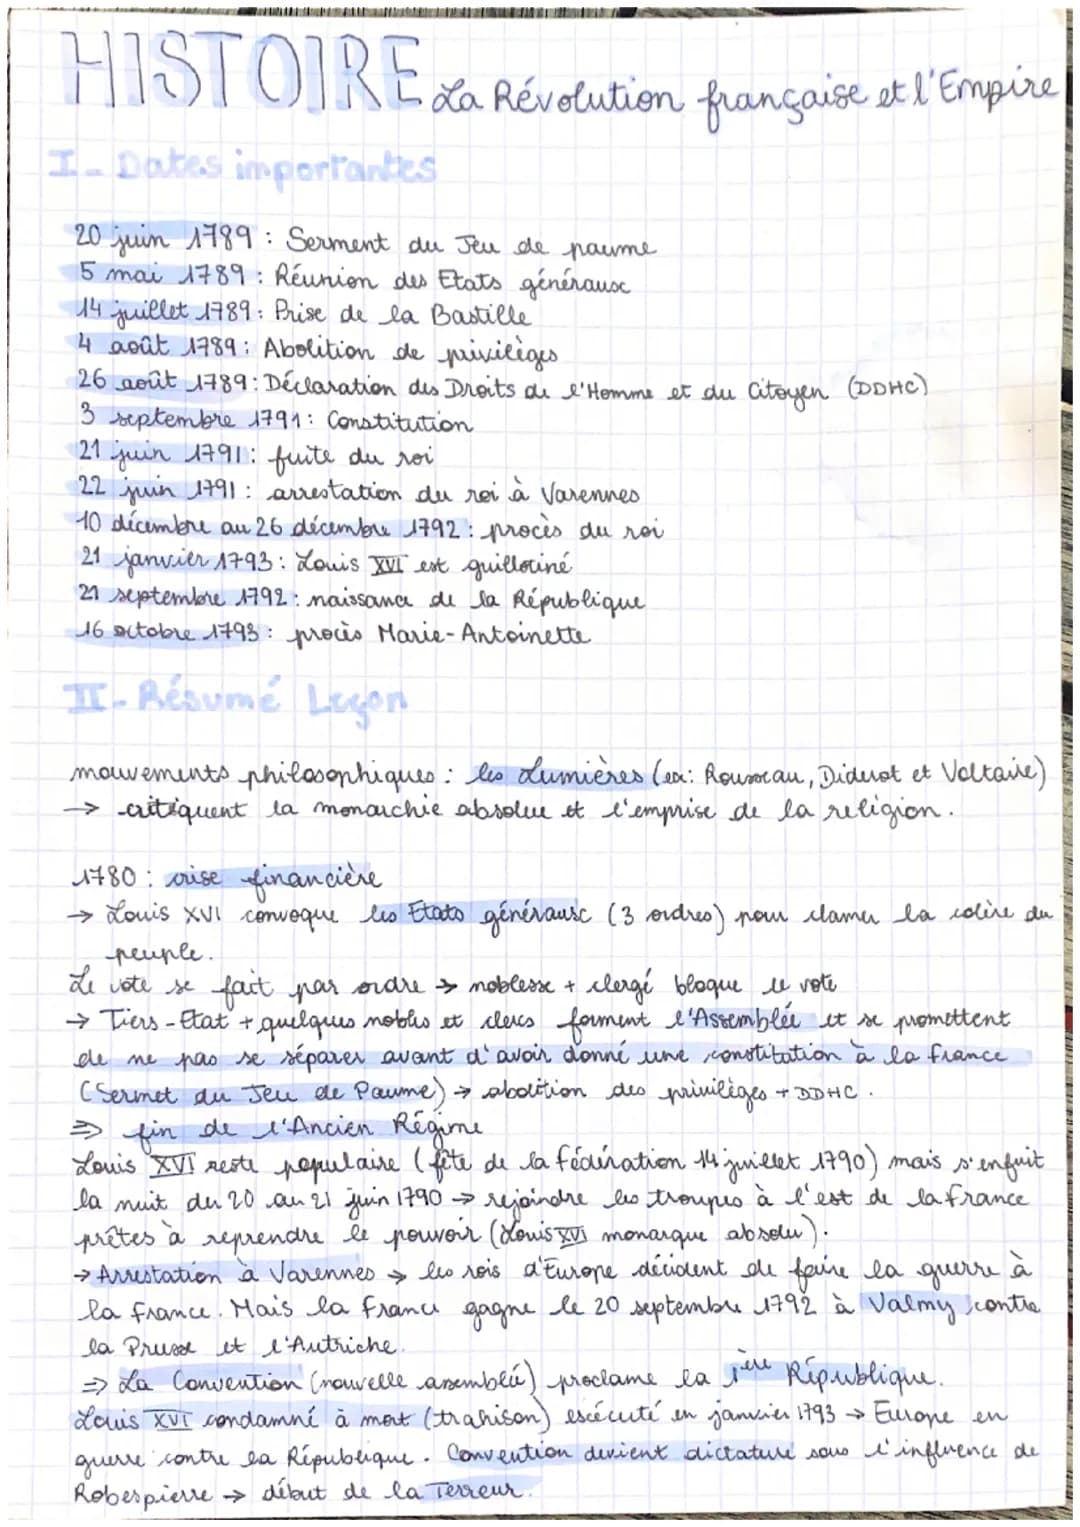 HISTOIRE La Révolution française et l'Empire
I - Dates importantes
20 juin 1789 : Serment du Jeu de paume
5 mai 1789 : Réunion des Etats généraux
14 juillet 1789 : Prise de la Bastille
4 août 1789 : Abolition de privilèges
26 août 1789 : Déclaration des Droits de l'Homme et du Citoyen (DDHC)
3 septembre 1791 : Constitution
21 juin 1791 : fuite du roi
22 juin 1791 : arrestation du roi à Varennes
10 décembre au 26 décembre 1792 : procès du roi
21 janvier 1793 : Louis XVI est guillotiné
21 septembre 1792 : naissance de la République
16 octobre 1793 : procès Marie-Antoinette
II - Résumé Leçon
mouvements philosophiques : les Lumières (ex : Rousseau, Diderot et Voltaire)
→ critiquent la monarchie absolue et l'emprise de la religion.
1780 : crise financière
→ Louis XVI convoque les Etats généraux (3 ordres) pour clamer la colère du
peuple.
Le vote se fait par ordre → noblesse + clergé bloque le vote
→ Tiers-Etat + quelques nobles et clercs forment l'Assemblée et se promettent
de ne pas se séparer avant d'avoir donné une constitution à la France
(Sermet du Jeu de Paume) → abolition des privilèges + DDHC.
⇒ fin de l'Ancien Régime
Louis XVI reste populaire (fête de la fédération 14 juillet 1790) mais s'enfuit
la nuit du 20 au 21 juin 1790 → rejoindre les troupes à l'est de la France
prêtes à reprendre le pouvoir (Louis XVI monarque absolu).
→ Arrestation à Varennes → les rois d'Europe décident de faire la guerre à
la France. Mais la France gagne le 20 septembre 1792 à Valmy contre
la Prusse et l'Autriche.
⇒ La Convention (nouvelle assemblée) proclame la 1ère République.
Louis XVI condamné à mort (trahison) exécuté en janvier 1793 → Europe en
guerre contre la République. Convention devient dictature sous l'influence de
Robespierre → début de la Terreur.